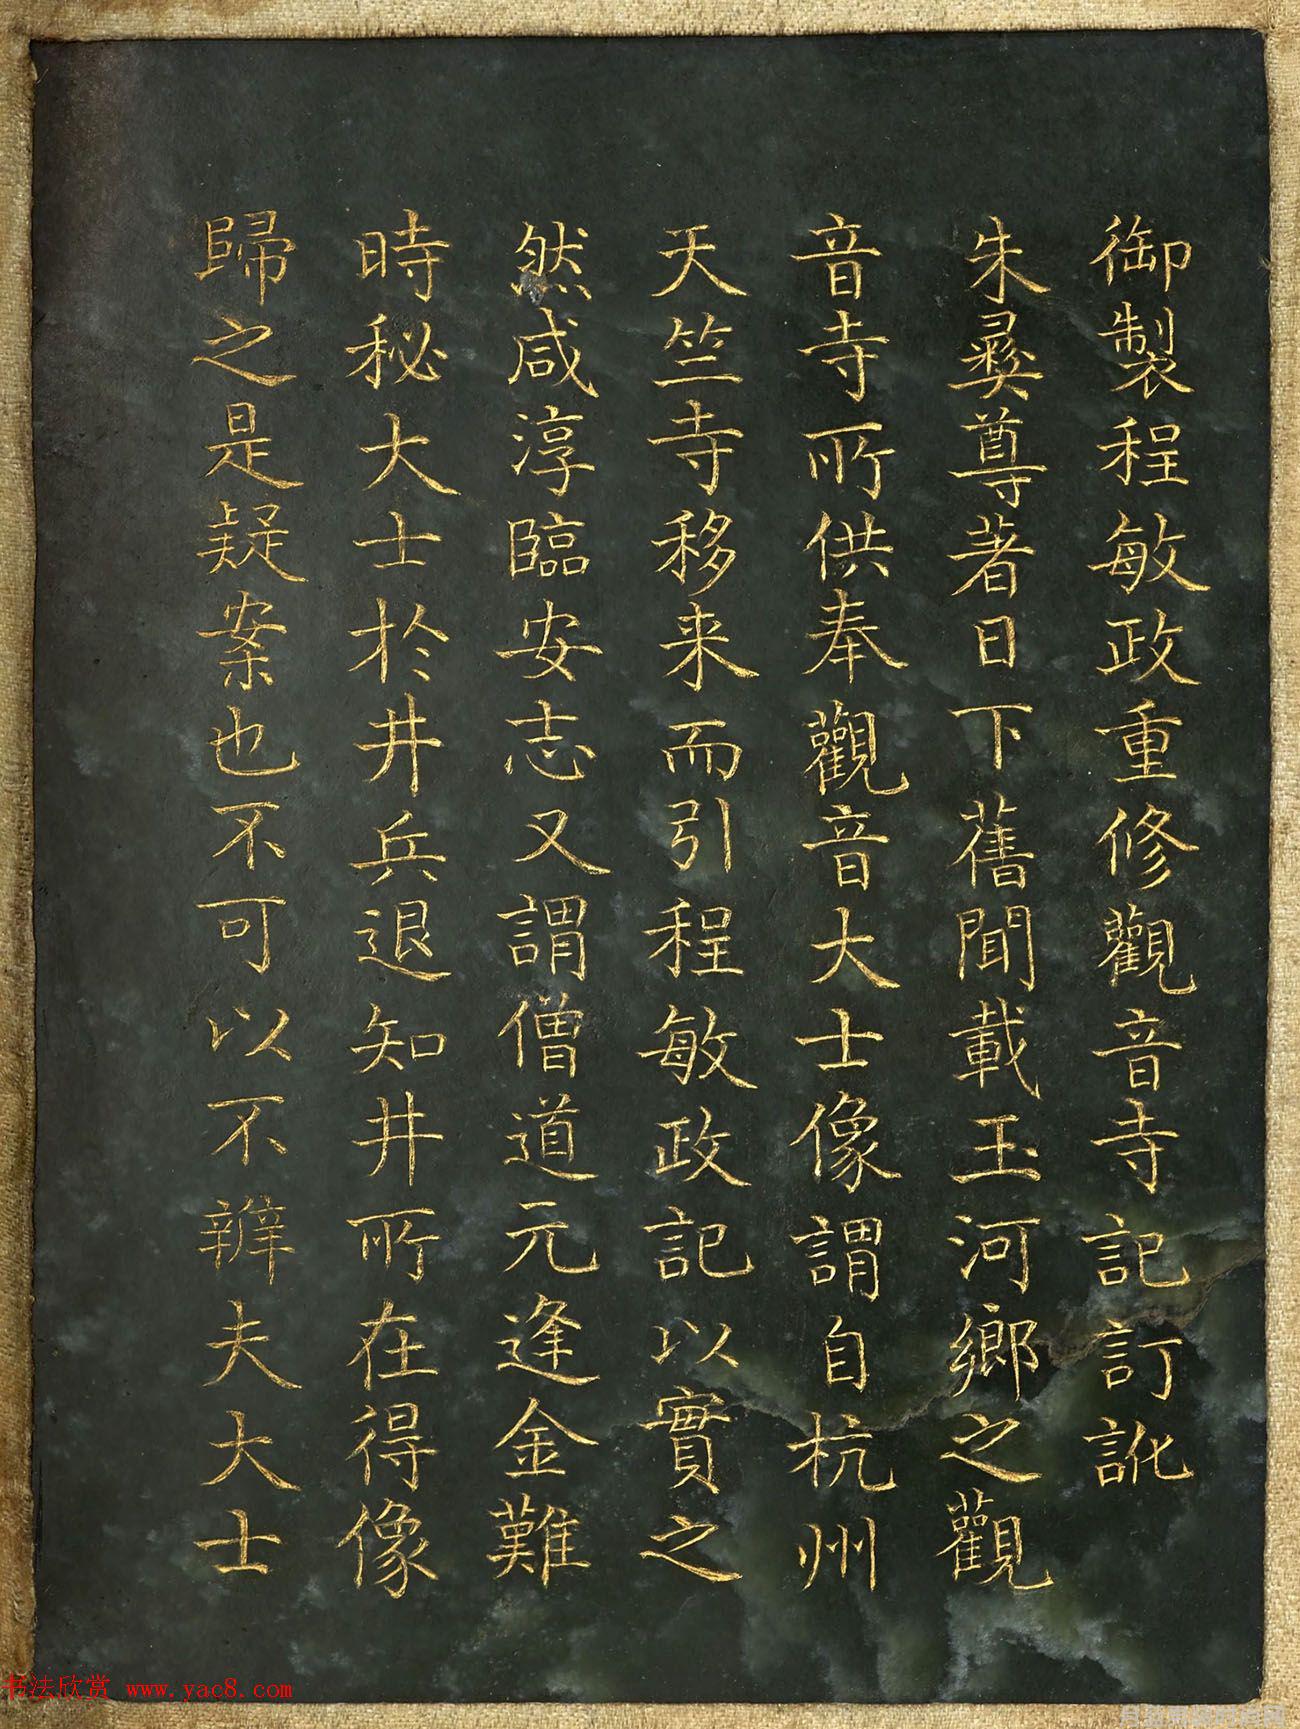 御製程敏政重修觀音寺記訂訛
朱彝尊著日下舊聞載玉河鄉之觀
音寺所供奉觀音大士像謂自杭州
天竺寺移来而引程敏政記以實之
然咸淳臨安志又謂僧道元逢金難
時秘大士於井兵退知井所在得像
歸之是疑案也不可以不辨夫大士
书法欣赏 www.yac8.com